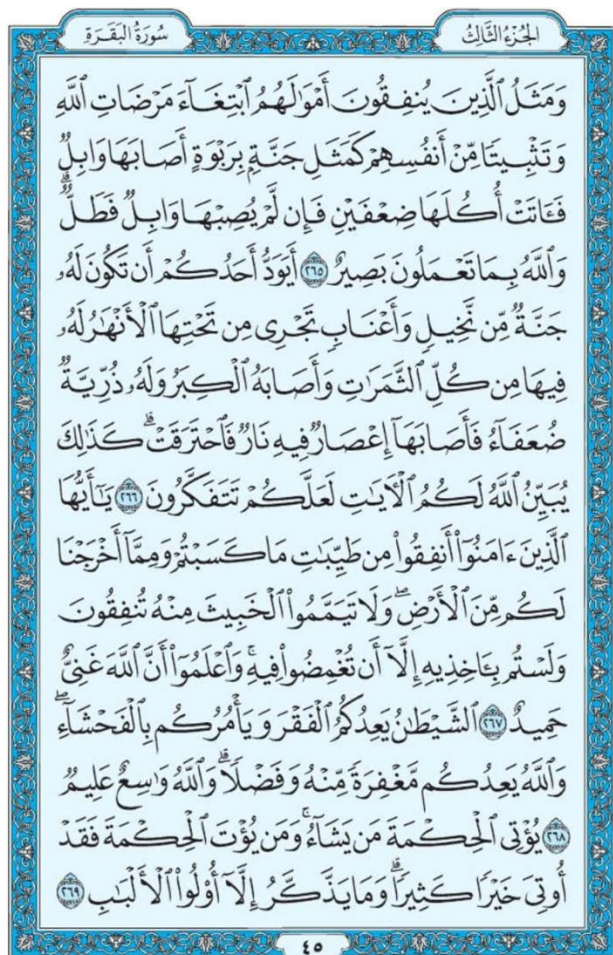 الجُزءُ الثَّالِث
سُورَةُ البَقَرَةِ
وَمَثَلُ ٱلَّذِينَ يُنفِقُونَ أَمْوَٰلَهُمُ ٱبْتِغَآءَ مَرْضَاتِ ٱللَّهِ
وَتَثْبِيتًا مِّنْ أَنفُسِهِمْ كَمَثَلِ جَنَّةٍۭ بِرَبْوَةٍ أَصَابَهَا وَابِلٌ
فَـَٔاتَتْ أُكُلَهَا ضِعْفَيْنِ فَإِن لَّمْ يُصِبْهَا وَابِلٌ فَطَلٌّ ۗ
وَٱللَّهُ بِمَا تَعْمَلُونَ بَصِيرٌ ٢٦٥ أَيَوَدُّ أَحَدُكُمْ أَن تَكُونَ لَهُۥ
جَنَّةٌ مِّن نَّخِيلٍ وَأَعْنَابٍ تَجْرِى مِن تَحْتِهَا ٱلْأَنْهَٰرُ لَهُۥ
فِيهَا مِن كُلِّ ٱلثَّمَرَٰتِ وَأَصَابَهُ ٱلْكِبَرُ وَلَهُۥ ذُرِّيَّةٌ
ضُعَفَآءُ فَأَصَابَهَآ إِعْصَارٌ فِيهِ نَارٌ فَٱحْتَرَقَتْ ۗ كَذَٰلِكَ
يُبَيِّنُ ٱللَّهُ لَكُمُ ٱلْـَٔايَٰتِ لَعَلَّكُمْ تَتَفَكَّرُونَ ٢٦٦ يَٰٓأَيُّهَا
ٱلَّذِينَ ءَامَنُوٓا۟ أَنفِقُوا۟ مِن طَيِّبَٰتِ مَا كَسَبْتُمْ وَمِمَّآ أَخْرَجْنَا
لَكُم مِّنَ ٱلْأَرْضِ ۖ وَلَا تَيَمَّمُوا۟ ٱلْخَبِيثَ مِنْهُ تُنفِقُونَ
وَلَسْتُم بِـَٔاخِذِيهِ إِلَّآ أَن تُغْمِضُوا۟ فِيهِ ۚ وَٱعْلَمُوٓا۟ أَنَّ ٱللَّهَ غَنِىٌّ
حَمِيدٌ ٢٦٧ ٱلشَّيْطَٰنُ يَعِدُكُمُ ٱلْفَقْرَ وَيَأْمُرُكُم بِٱلْفَحْشَآءِ ۖ
وَٱللَّهُ يَعِدُكُم مَّغْفِرَةً مِّنْهُ وَفَضْلًا ۗ وَٱللَّهُ وَٰسِعٌ عَلِيمٌ
٢٦٨ يُؤْتِى ٱلْحِكْمَةَ مَن يَشَآءُ ۚ وَمَن يُؤْتَ ٱلْحِكْمَةَ فَقَدْ
أُوتِىَ خَيْرًا كَثِيرًا ۗ وَمَا يَذَّكَّرُ إِلَّآ أُو۟لُوا۟ ٱلْأَلْبَٰبِ ٢٦٩
٤٥